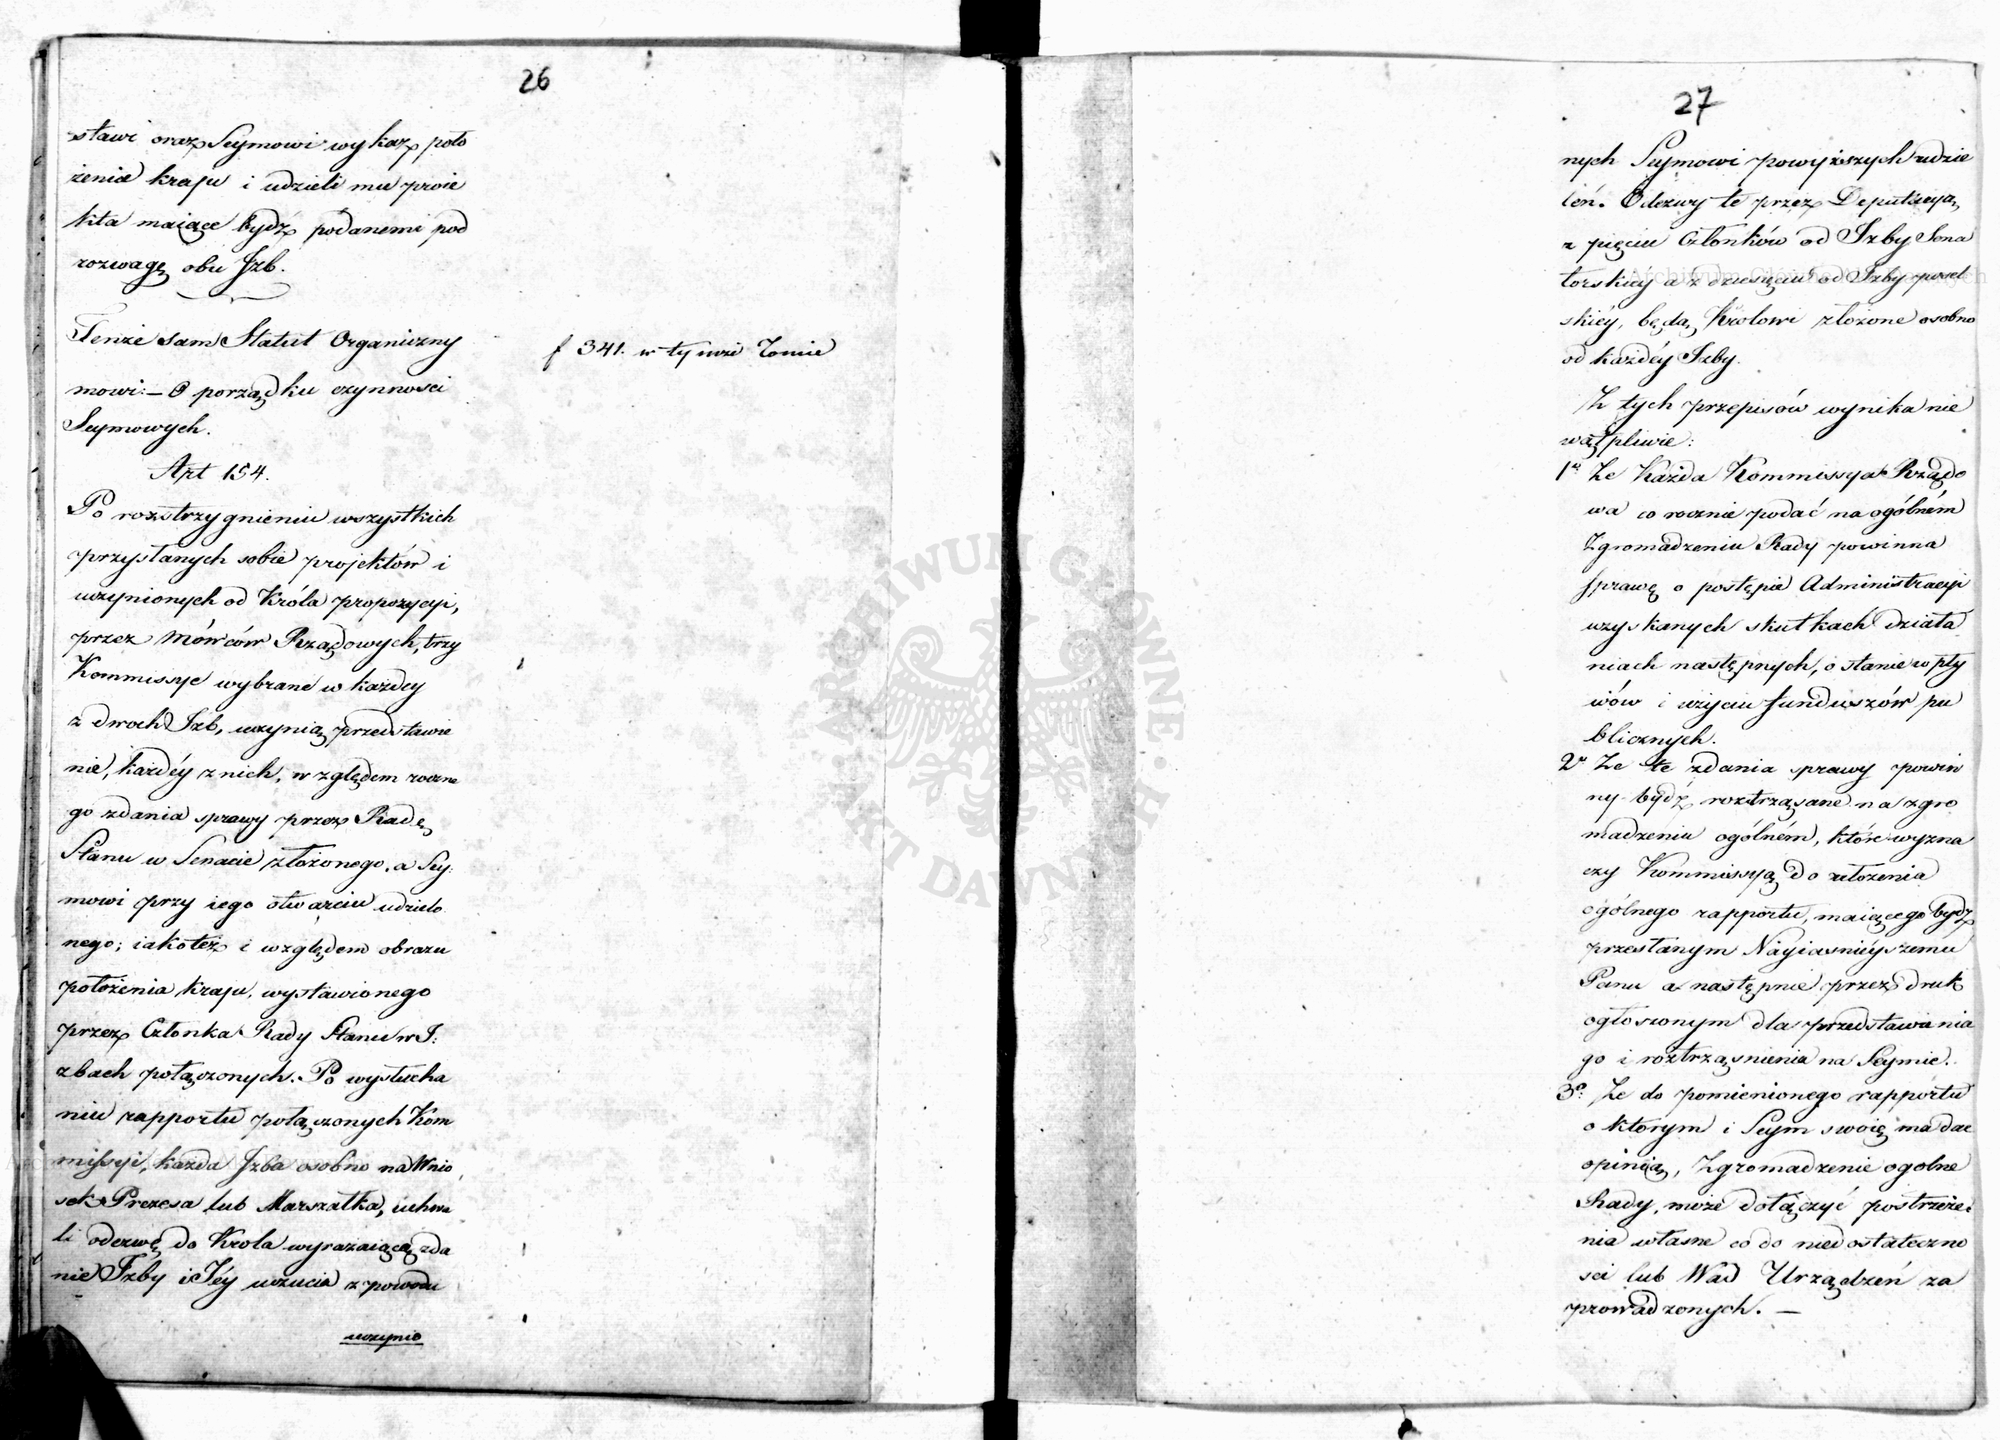 26
stawi oraz Seymowi wykaz poło
żenia kraju i udzieli mu proie
kta maiące bydź podanemi pod
rozwagę obu Jzb.
Tenże sam Statut Organiczny
f 341. w tymże Tomie
mowi: — O porządku czynności
Seymowych.
Art 154.
Po rozstrzygnieniu wszystkich
przysłanych sobie projektów i
uczynionych od Króla propozycyi,
przez Mówców Rządowych, trzy
Kommissye wybrane w każdey
z dwoch Jzb, uczynią przedstawie
nie, każdéy z nich, względem roczne
go zdania sprawy przez Radę
Stanu w Senacie złożonego, a Sey:
mowi przy iego otwarciu udzielo
nego; iakoteż i względem obrazu
położenia kraju, wystawionego
przez Członka Rady Stanu w J:
zbach połączonych. Po wysłucha
niu rapportu połączonych Kom
missyi, każda Jzba osobno na Wnio
sek Prezesa lub Marszałka, uchwa
li odezwę do Krola wyrażaiącą zda
nie Jzby i Jéy uczucia z powodu
uczynio
27
nych Seymowi powyższych udzie
leń. Odezwy te przez Deputacyą,
z pięciu Członków od Jzby Sena
torskiey a z dziesięciu od Jzby posel
skiéy, będą Krolowi złożone osobno
od każdéy Jzby.
Z tych przepisów wynika nie
wątpliwie:
1º Ze Każda Kommissya Rządo
wa co rocznie podać na ogólném
Zgromadzeniu Rady powinna
sprawę o postępie Administracyi
uzyskanych skutkach działa
niach następnych, o stanie wpły
wów i użyciu funduszów pu
blicznych.
2º Ze te zdania sprawy powin
ny bydź roztrząsane na zgro
madzeniu ogólném, które wyzna
czy Kommissyą do ułożenia
ogólnego rapportu, maiącego bydź
przesłanym Nayiaśnieyszemu
Panu a następnie przez druk
ogłoszonym dla przedstawienia
go i roztrząśnienia na Seymie.
3º: Ze do pomienionego rapportu
o ktorym i Seym swoię ma dać
opinią, Zgromadzenie ogolne
Rady, może dołączyć postrzeże:
nia własne co do niedostateczno
ści lub Wad Urządzeń za
prowadzonych. —
ARCHIWUM GŁÓWNE
AKT DAWNYCH